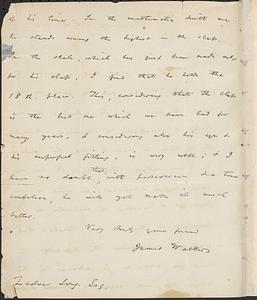 of his time. In the mathematics drill we
he stands among the highest in the class.
In the scale, which has just been made out
for his class, I find that he holds the
18th place. This, considering that the class
is the best one which we have had for
many years, & considering also his age &
his imperfect fitting, is very well; & I
have no doubt that, with perseverance & a true
ambition, he will yet make it much
better.
Very truly your friend
James Walker
Zadoc Long, Esq.